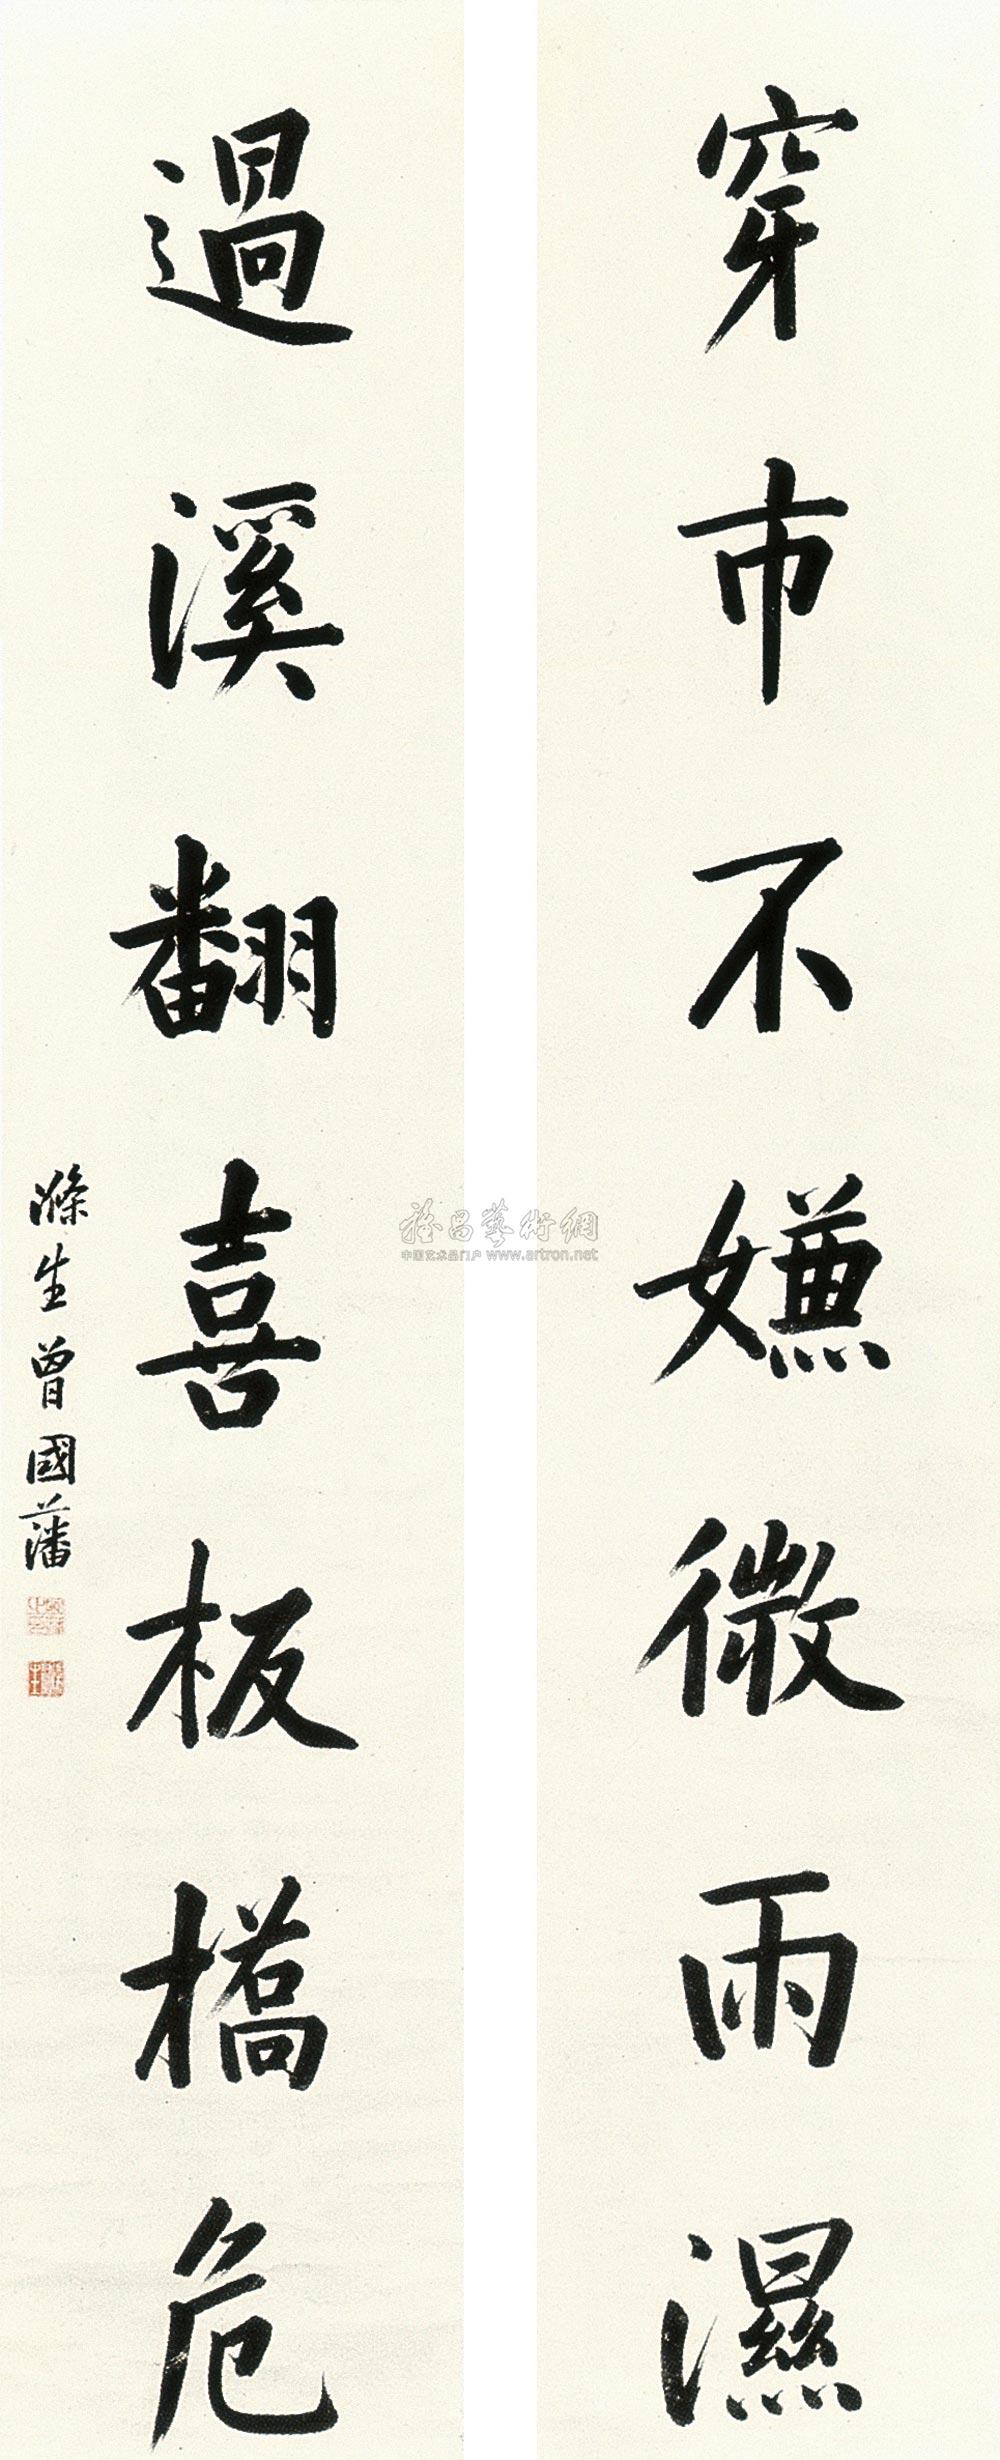 穿市不嫌微雨濕
過溪翻喜板橋危
滌生曾國藩
雅昌藝術網
中国艺术品门户 www.artron.net